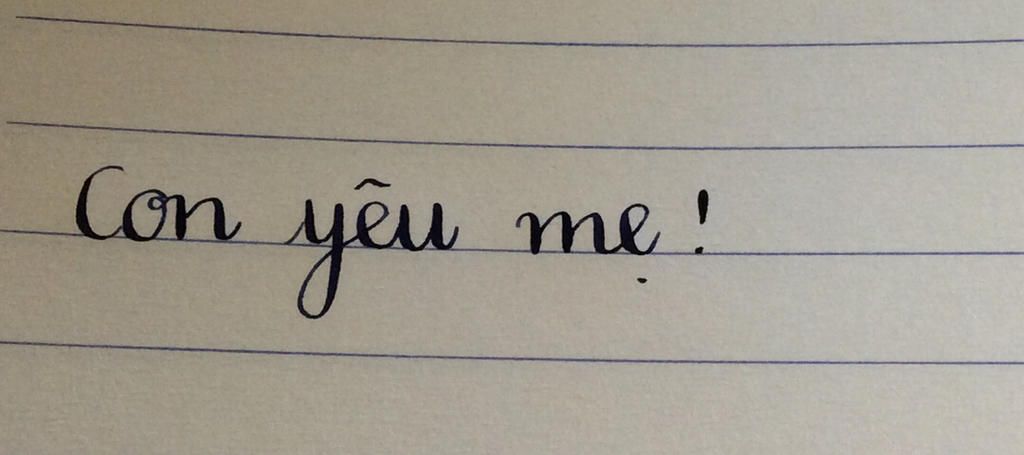 Con yêu mẹ!